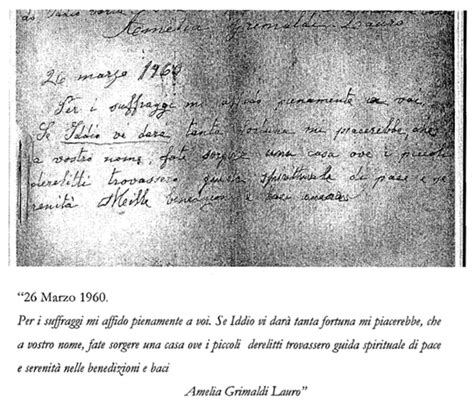 Amelia Grimaldi Lauro
26 marzo 1960
Per i suffraggi mi affido pienamente a voi
Se Iddio vi dara tanta fortuna mi piacerebbe, che
a vostro nome, fate sorgere una casa ove i piccoli
derelitti trovassero guida spirituale di pace e se
renità Mille benedizioni e baci
“26 Marzo 1960.
Per i suffraggi mi affido pienamente a voi. Se Iddio vi darà tanta fortuna mi piacerebbe, che
a vostro nome, fate sorgere una casa ove i piccoli derelitti trovassero guida spirituale di pace
e serenità nelle benedizioni e baci
Amelia Grimaldi Lauro”